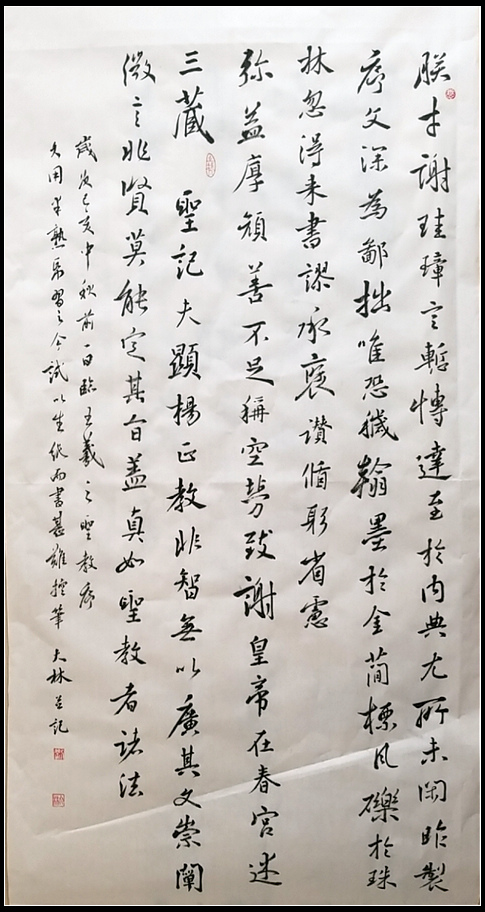 朕才謝珪璋言慙博達至於內典尤所未閑昨製
序文深為鄙拙唯恐穢翰墨於金簡標瓦礫於珠
林忽得来書謬承褒讃循躬省慮
弥益厚顔善不足稱空勞致謝皇帝在春宮述
三藏聖記夫顯揚正教非智無以廣其文崇闡
微言非賢莫能定其旨盖真如聖教者諸法
歲次己亥中秋前一日臨王羲之聖教序
久用半熟帋習之今試以生紙而書甚難控筆大林並記